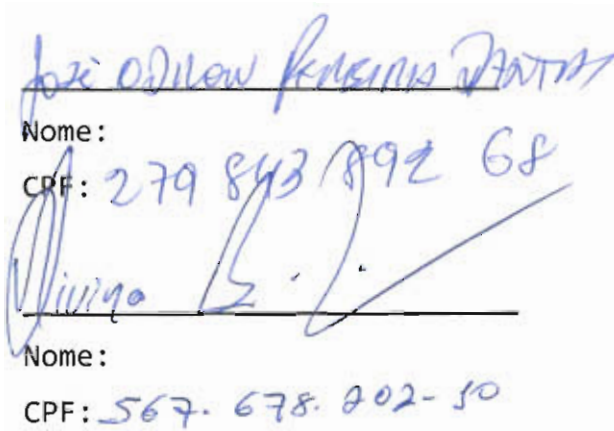 José ODILON PEREIRA DANTAS
Nome:
CPF: 279 843 892 68
Nome:
CPF: 567. 678. 202-10